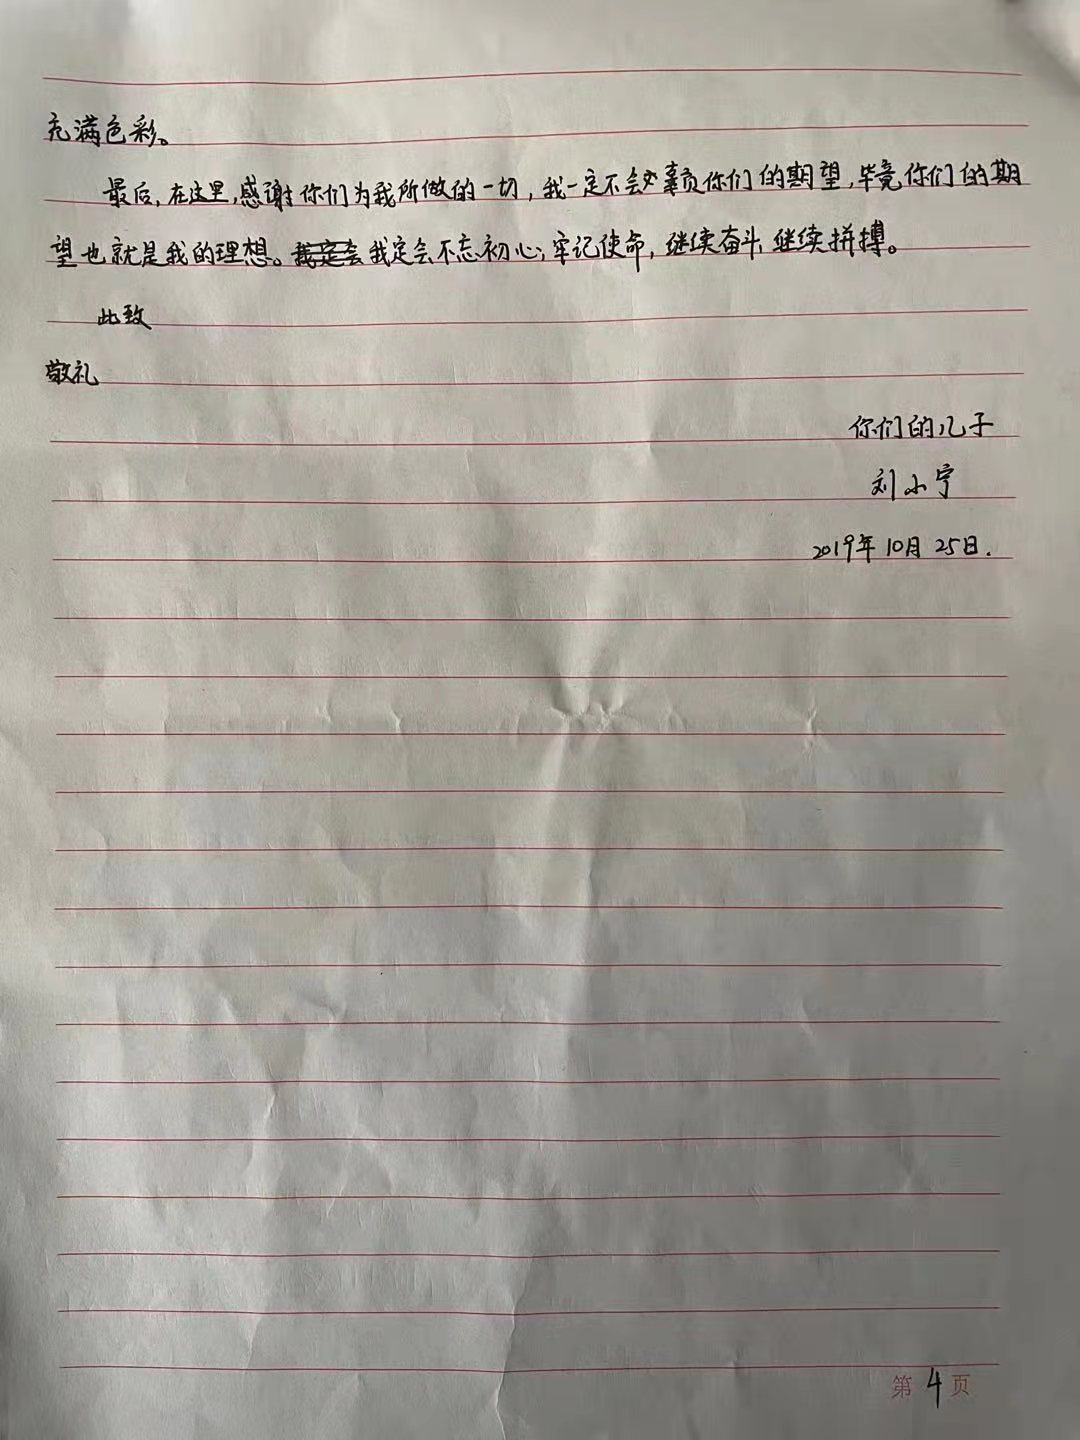 充满色彩。
最后,在这里,感谢你们为我所做的一切,我一定不会辜负你们的期望,毕竟你们的期
望也就是我的理想。我定会不忘初心;牢记使命,继续奋斗,继续拼搏。
此致
敬礼
你们的儿子
刘小宁
2019年10月25日.
第4页